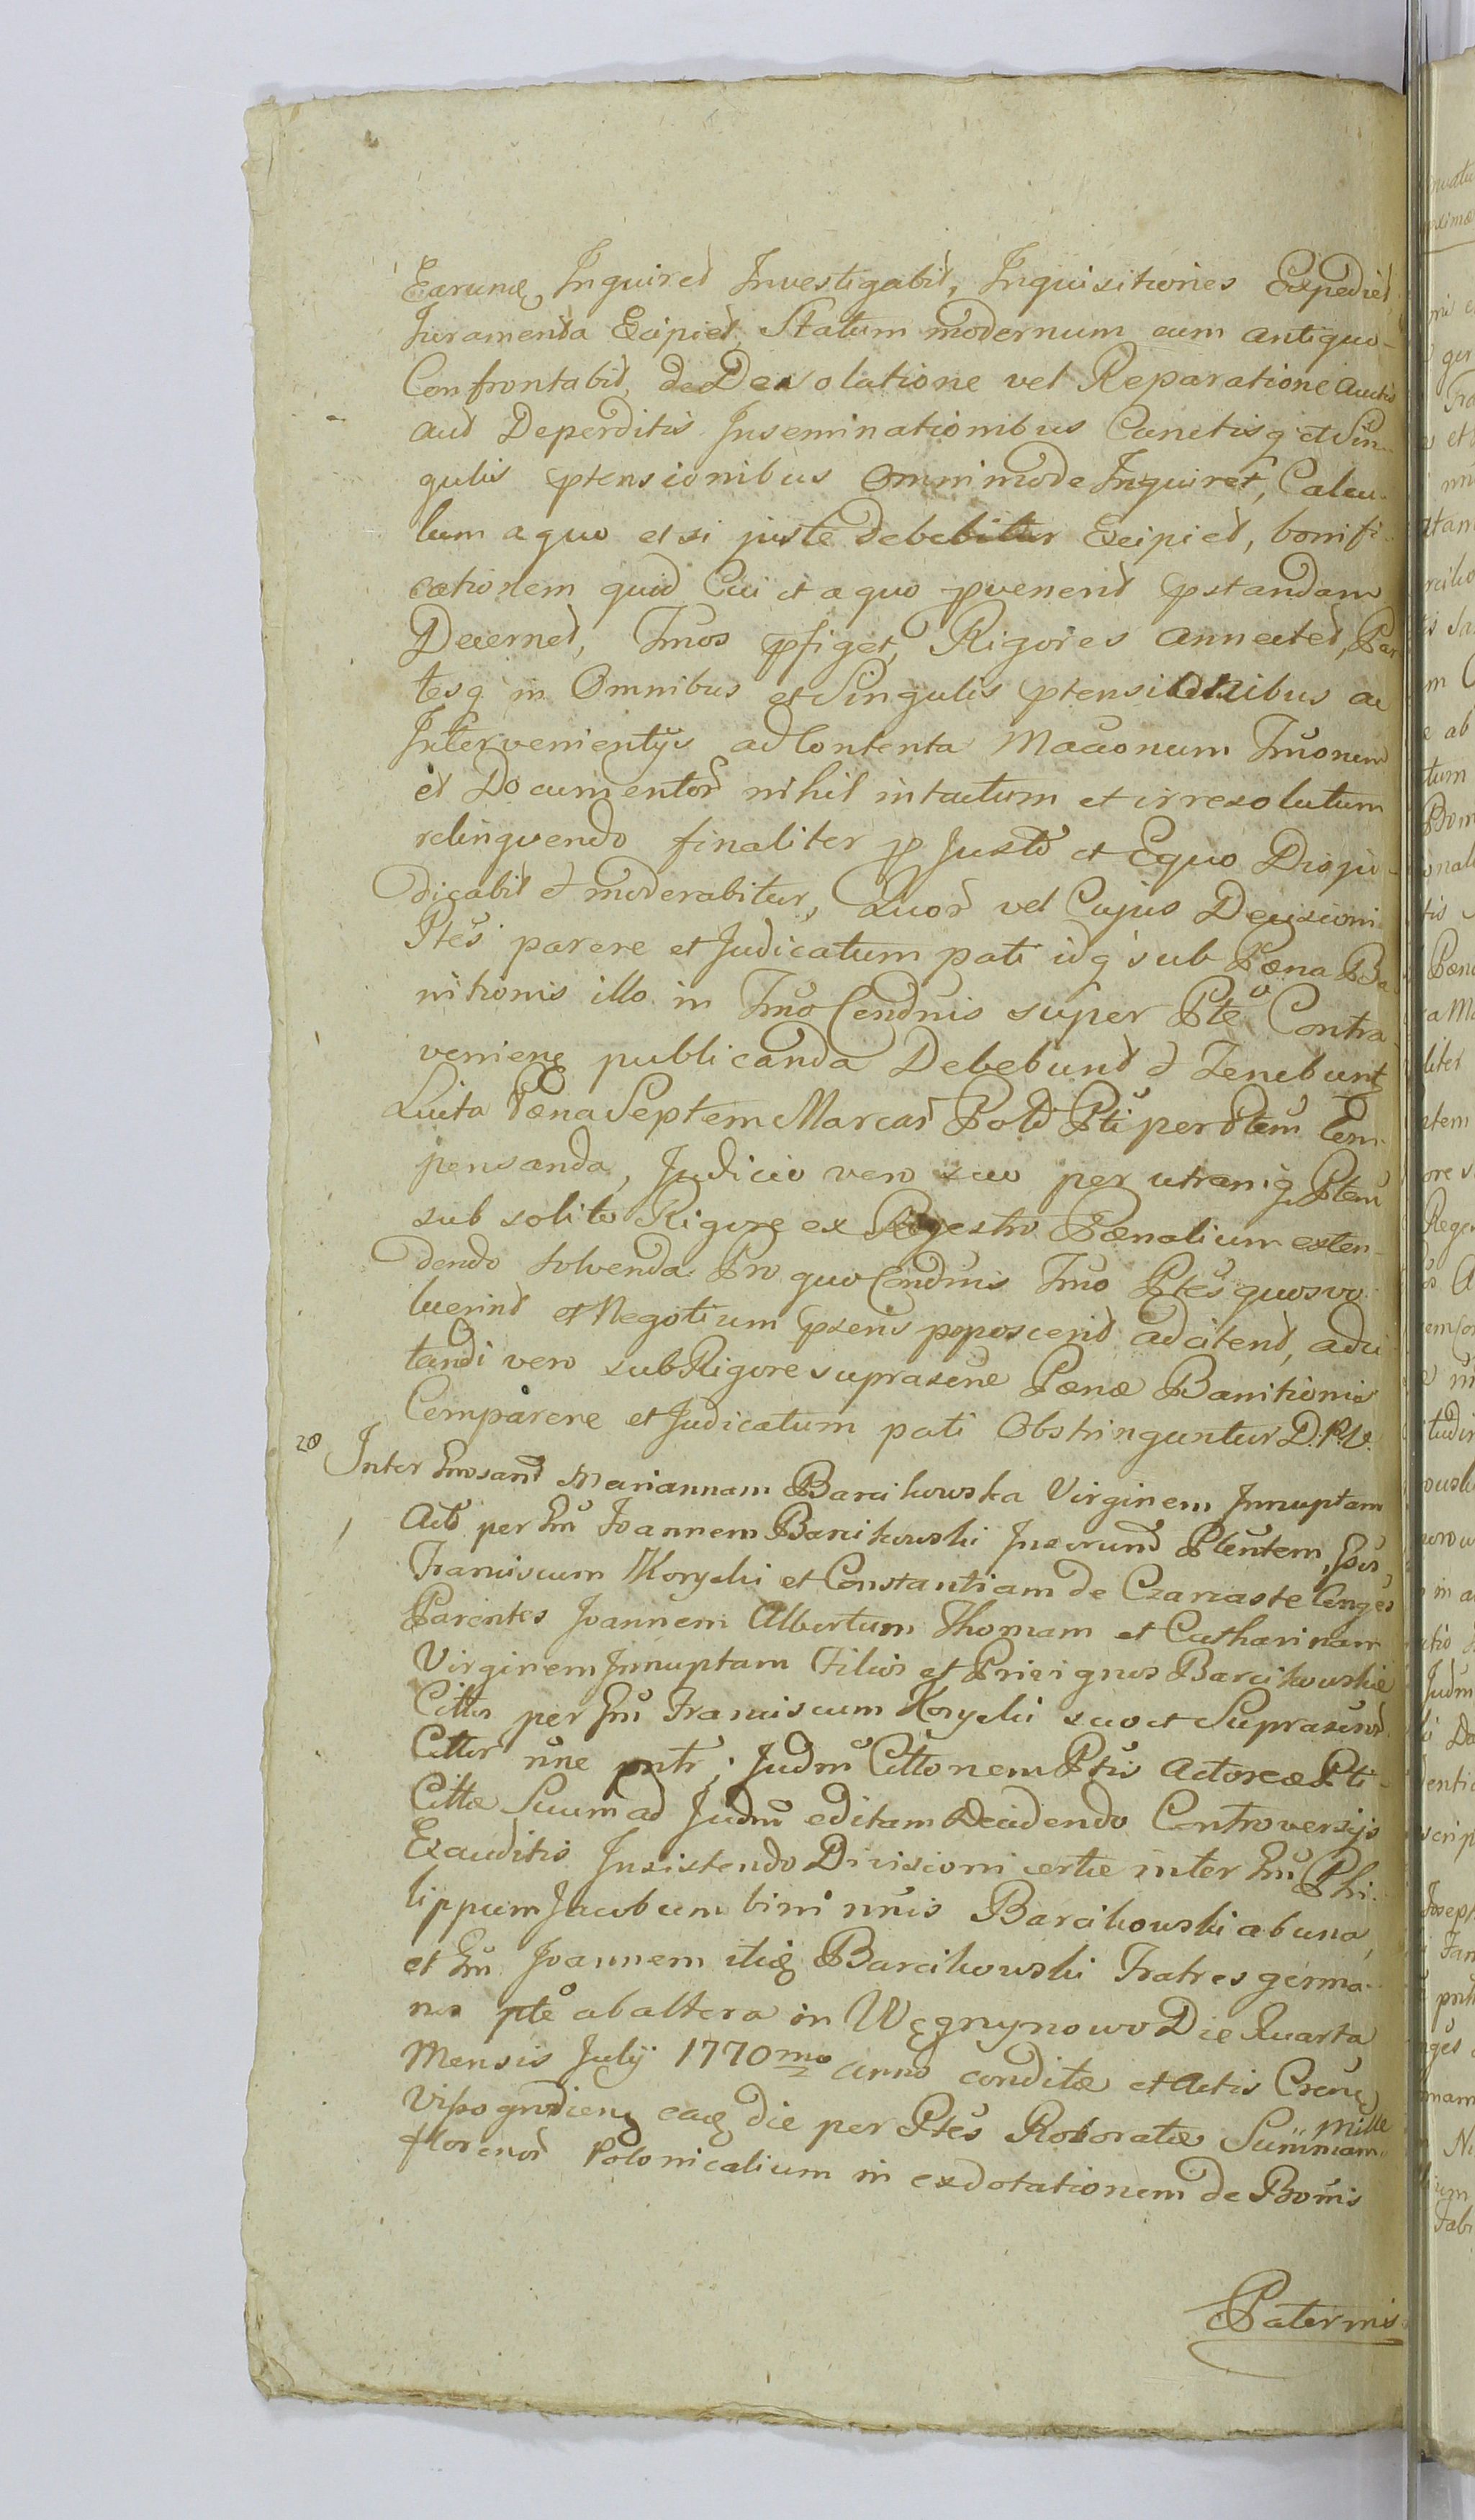 Earumq Inquiret Investigabit, Inquisitiones Expediet
Juramenta Excipiet, Statum modernum cum antiquo
Confrontabit, de Desolatione vel Reparatione Auctis
aut Deperditis Inseminationibus Cunctisq et Sin-
gulis ptensionibus Omnimode Inquiret, Calcu-
lum a quo et si juste debebitur Excipiet, bonifi-
cationem quid Cui et a quo pvenerit pstandam
Decernet, Tmos pfiget, Rigores annectet, Par
tesq in Omnibus et Singulis ptensionibus ac
Intervenientijs ad Contenta
et Documentor nihil intactum et irresolutum
relinquendo finaliter p Justo et Equo Dijudi-
dicabit et moderabitur, Quor vel Cujus Decisioni
Ptes parere et Judicatum pati idq sub Pæna Ba-
nitionis illo in Tmo Condnis super Pte Contra
venienq publicanda Debebunt et Tenebunt
Luita Pæna Septem Marcar Pol Pti per Ptem Com-
pensanda, Judicio vero suo per utramq Ptem
sub solito Rigore ex Regestro Pænalium exten-
dendo solvenda. Pro quo Condnis Tmo Ptes quos vo
luerint et Negotium psens poposcerit adcitent, adci
tandi vero sub Rigore suprasene Pænæ Banitionis
Comparere et Judicatum pati Obstringuntur D.P.V.
28 Inter Mariannam Barcikowska Virginem Innuptam
Act per Joannem Barcikowski Plentem,
Franciscum Korycki et Constantiam de Czarcaste Conges
Parentes Joannem Albertum Thomam et Catharinam
Virginem Innuptam Filios et Privignos Barcikowskie
Cittos per Franciscum Korycki suo et Supraseno
Cittor nne pntr; Judm Cittonem Ptis Actoreæ Pti
Cittæ Suum ad Judm editam Decidendo Controversijs
Exauditis Insistendo Divisioni certæ inter Phi-
lippum Jacobum bini nnis Barcikowski ab una,
et Joannem itiq Barcikowski Fratres germa-
nos pte ab altera in Węgrzynowo Die Quarta
Mensis July 1770mo anno conditæ et Actis
eaq die per Ptes Roboratæ Summam Mille
florenor Polonicalium in exdotationem de Bonis
Paternis